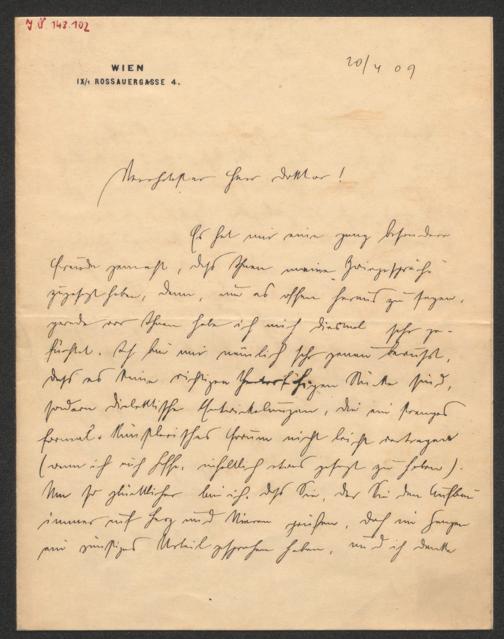 J.N. 143.102
WIEN
IX/1 ROSSAUERGASSE 4.
20/4 09
Verehrtester Herr Doktor!
Es hat mir eine ganz besondere
Freude gemacht, daß Ihnen meine „Zwiegespräche“
zugesagt haben, denn, um es offen heraus zu sagen,
gerade vor Ihnen habe ich mich diesmal sehr ge-
fürchtet. Ich bin mir nämlich sehr genau bewußt,
daß es keine richtigen Stücke sind,
sondern dialektische Entwickelungen, die ein strenges
formal-künstlerisches nicht leicht vertragen
(wenn ich auch hoffe, inhaltlich etwas gesagt zu haben).
Um so glücklicher bin ich, daß Sie, der Sie den Aufbau
immer auf Herz und Nieren prüfen, doch im Ganzen
ein günstiges Urteil gesprochen haben, und ich danke